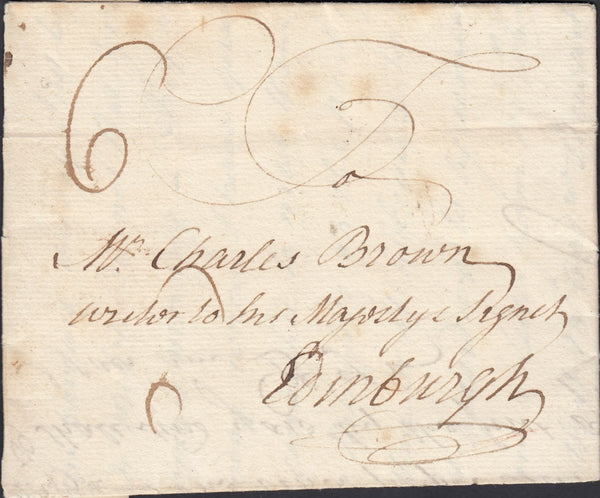 6 To
Mr. Charles Brown
writer to his Majestys Signet
Edinburgh